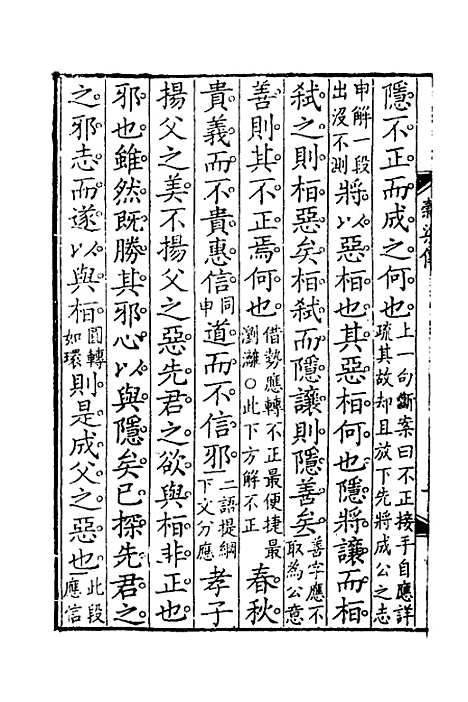 隱不正而成之何也上一句斷案曰不正接手自應詳疏其故却且放下先將成公之志
申解一段出沒不測將以惡桓也其惡桓何也隱將讓而桓
弒之則桓惡矣桓弒而隱讓則隱善矣善字應不取為公意
善則其不正焉何也借勢應轉不正最便捷最瀏灕○此下方解不正春秋
貴義而不貴惠信同申道而不信邪二語提綱下文分應孝子
揚父之美不揚父之惡先君之欲與桓非正也
邪也雖然既勝其邪心以與隱矣已探先君之
之邪志而遂以與桓圓轉如環則是成父之惡也此段應信